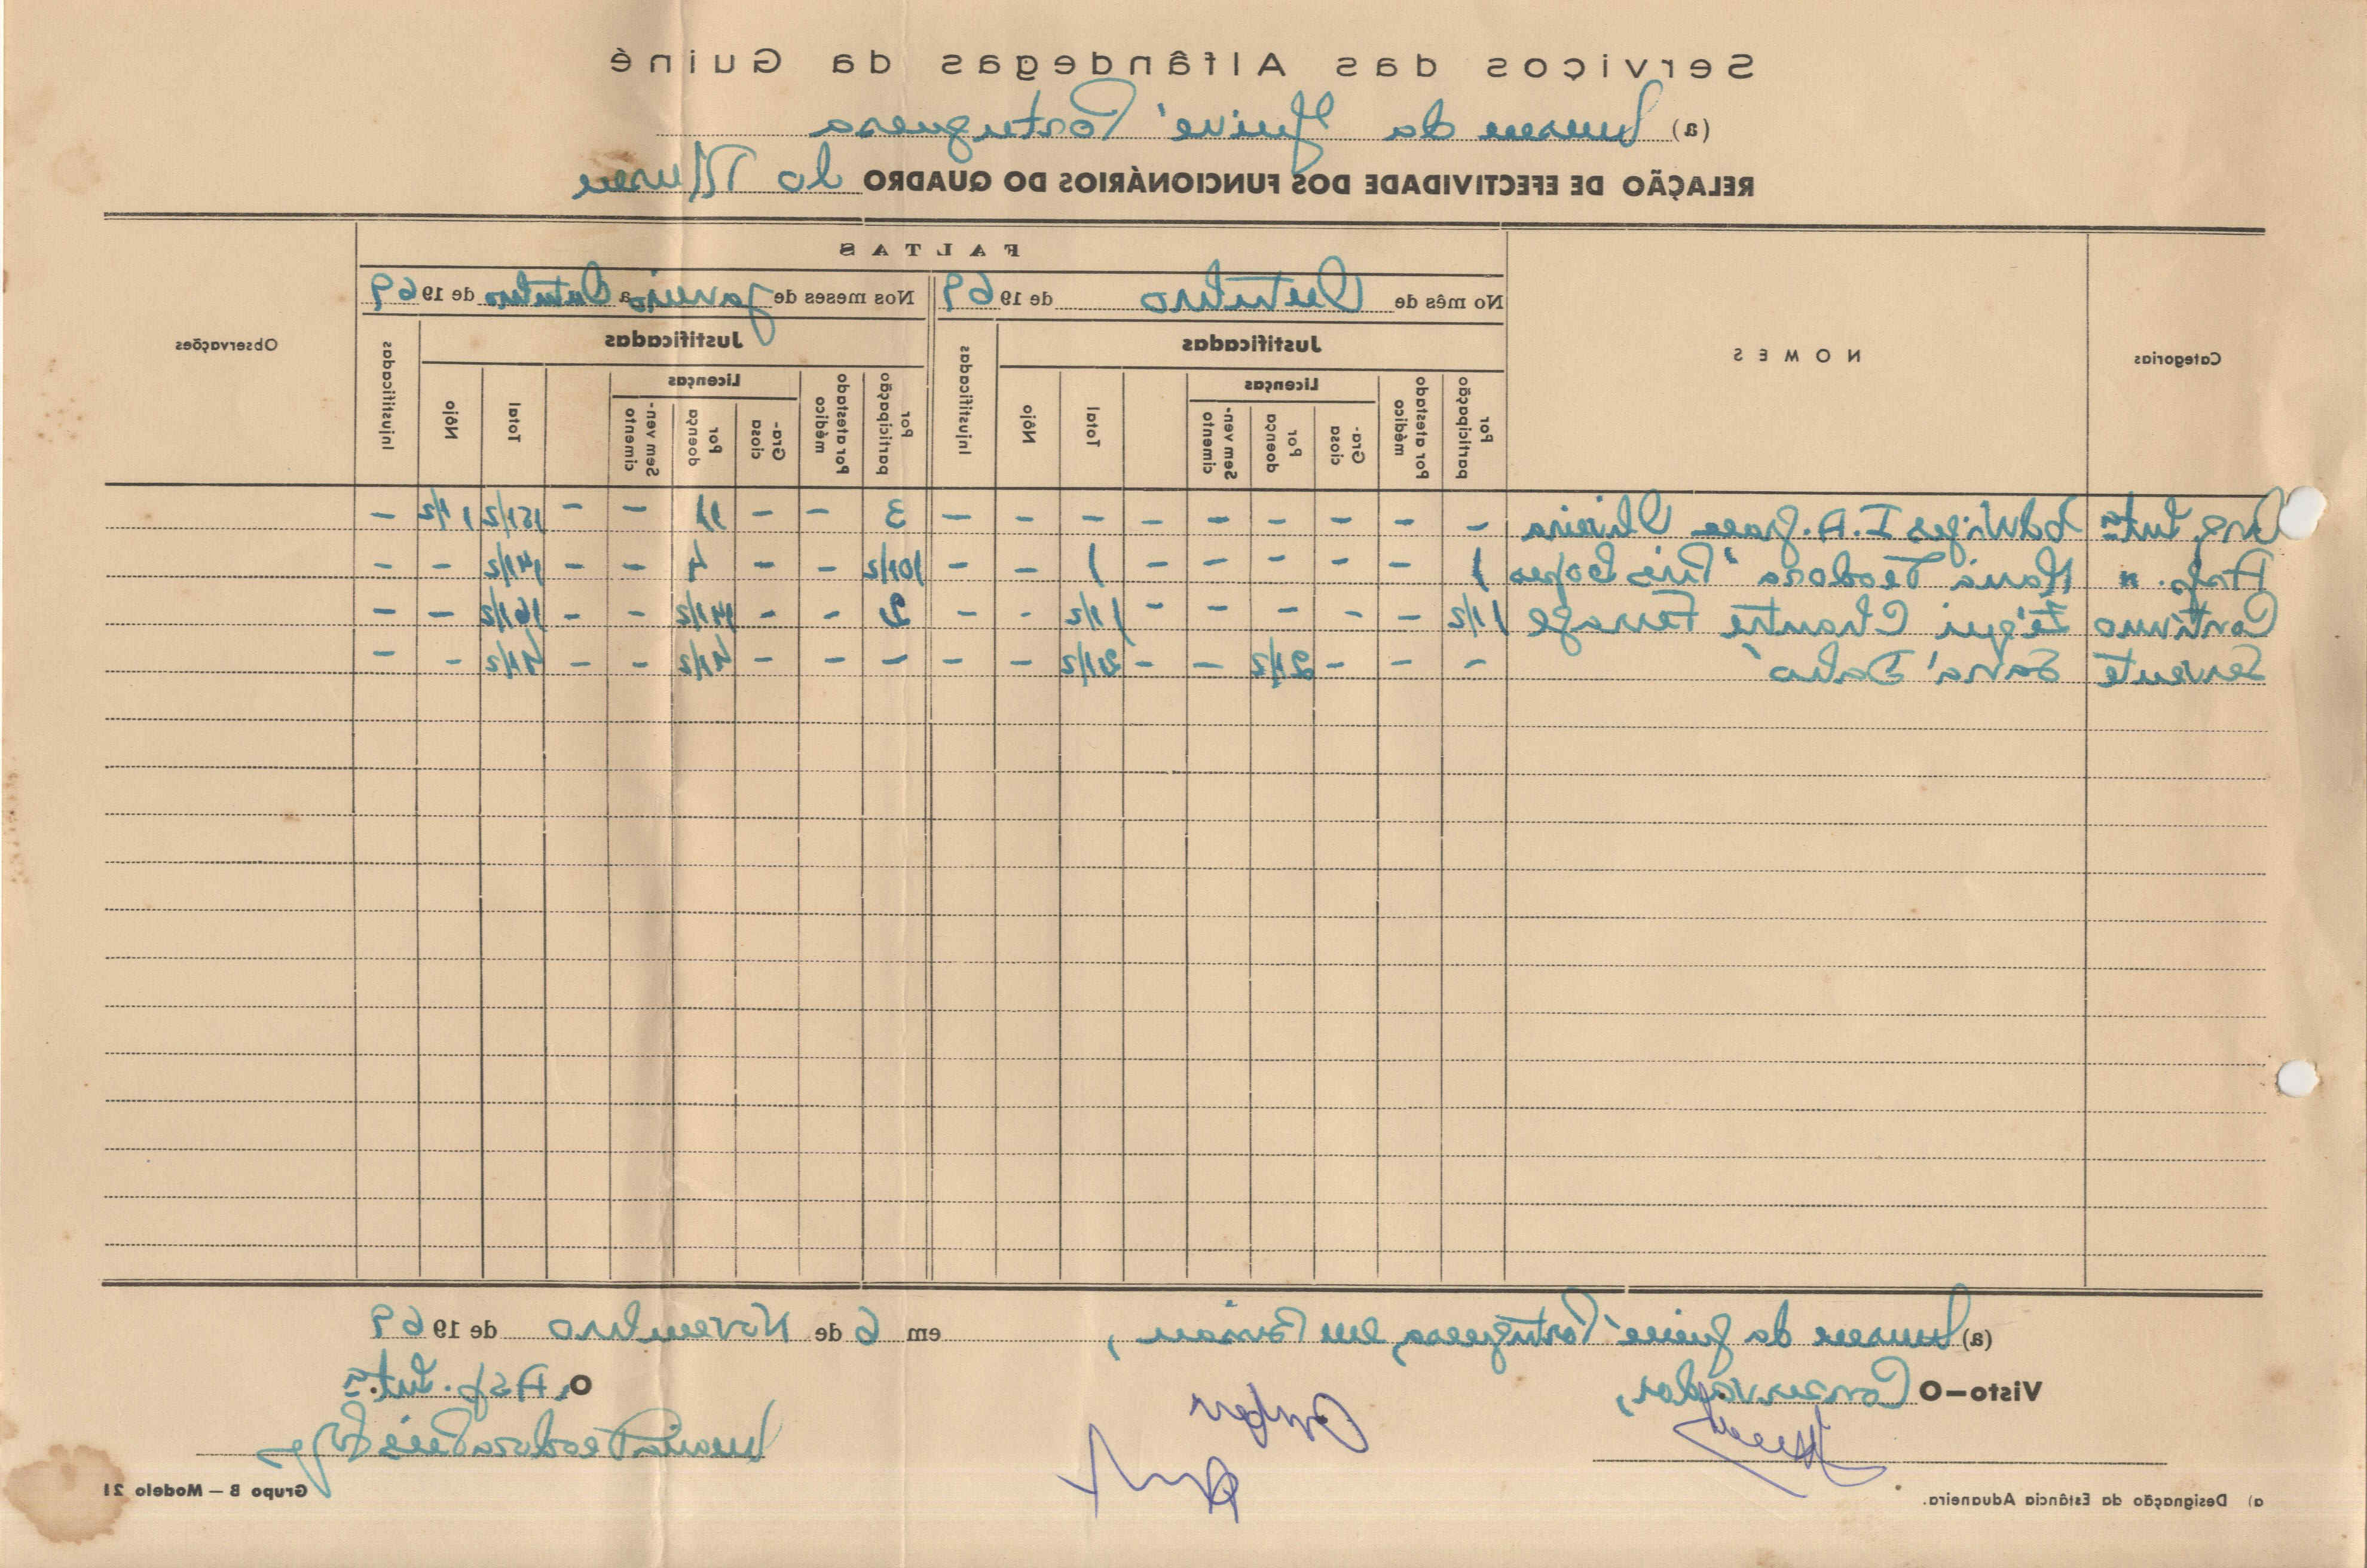 Serviços das Alfândegas da Guiné
(a) Museu da Guiné Portuguesa
RELAÇÃO DE EFECTIVIDADE DOS FUNCIONÁRIOS DO QUADRO do Museu
Categorias
NOMES
FALTAS
No mês de Outubro de 1969
Nos meses de Janeiro a Outubro de 1969
Observações
Justificadas
Justificadas
Por participação
Por atestado médico
Licenças
Gra- ciosa
Por doença
Sem ven- cimento
Total
Nôjo
Injustificadas
Por participação
Por atestado médico
Licenças
Gra- ciosa
Por doença
Sem ven- cimento
Total
Nôjo
Injustificadas
Int.ª I. A. Oliveira - - - - - - - - - - 3 - - 11 - - 15 1/2 1 1/2 -
" Maria Teodora Pires Lopes 1 - - - - - 1 - - 10 1/2 - - 4 - - 14 1/2 - -
Contínuo Ferrage 1 1/2 - - - - - 1 1/2 - - 2 - - 14 1/2 - - 16 1/2 - -
Servente Saná - - - 2 1/2 - - 2 1/2 - - - - - 4 1/2 - - 4 1/2 - -
(a) Museu da Guiné Portuguesa, em Bissau, em 6 de Novembro de 1969
Visto—O Conservador,
O, Asp. Int.ª
Maria Teodora Pires Lopes
a) Designação da Estância Aduaneira.
Grupo B — Modelo 21